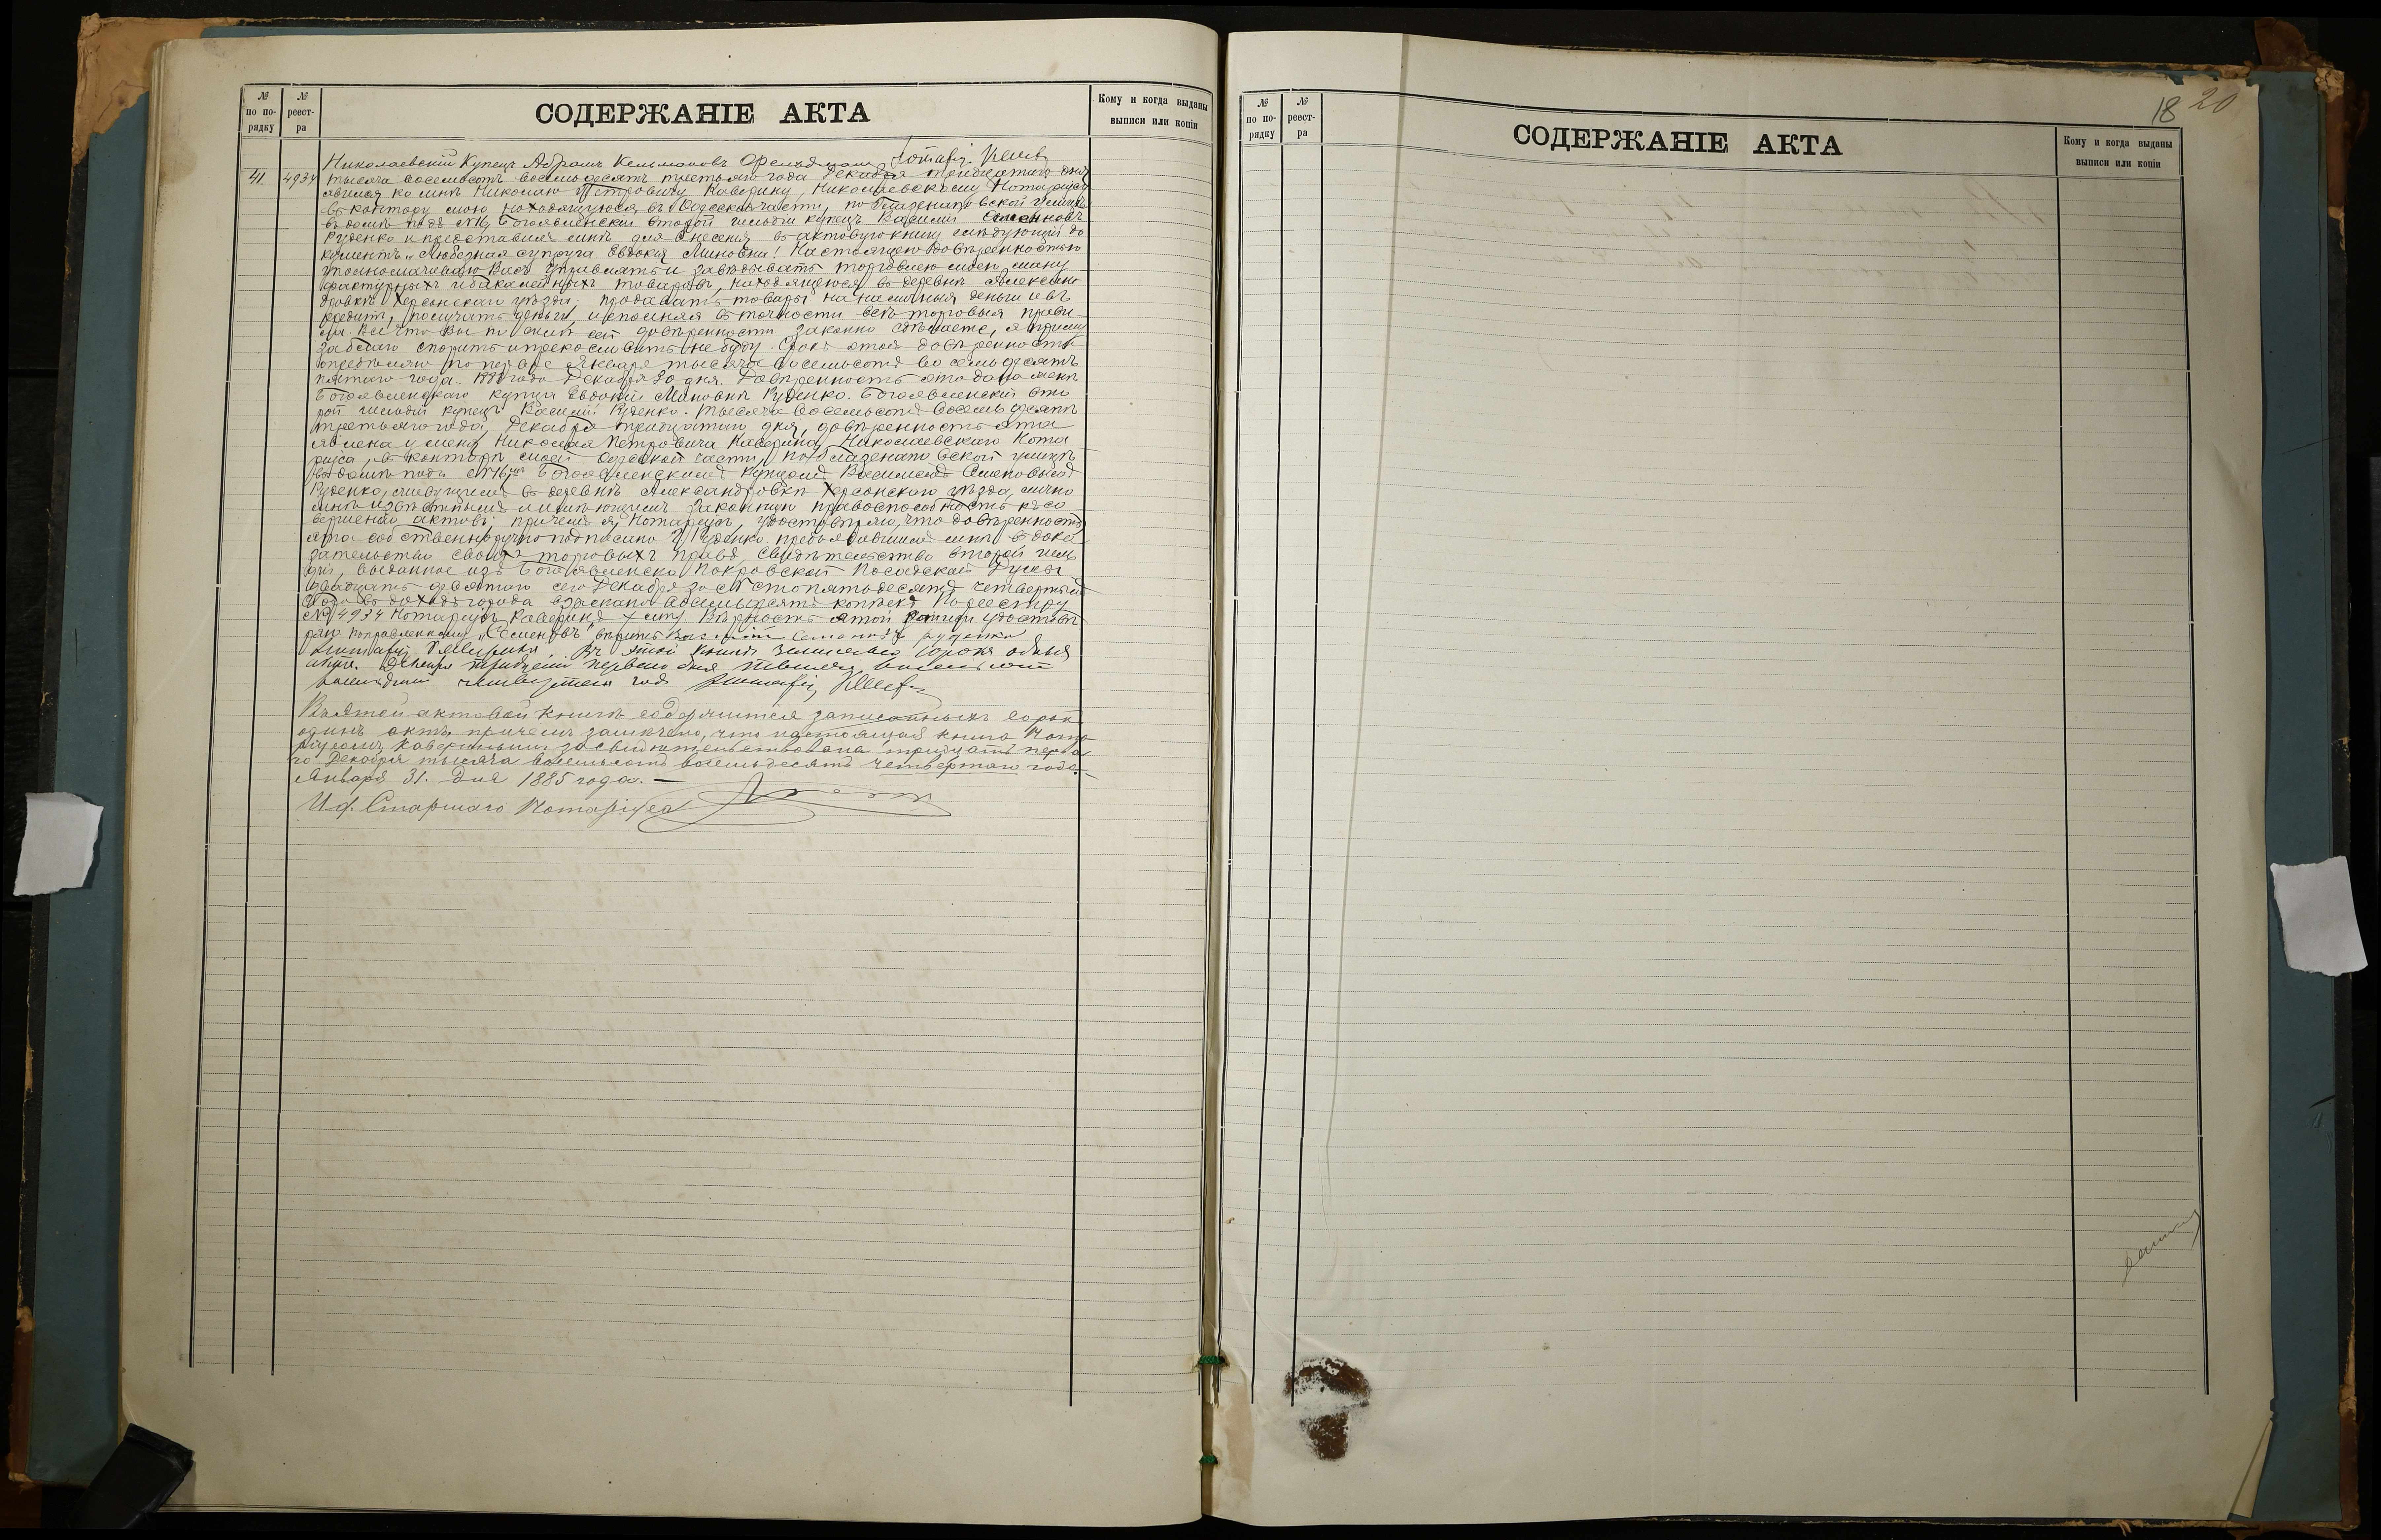 № по по-рядку
№ реест-ра
СОДЕРЖАНІЕ АКТА
Кому и когда выданы выписи или копіи
Николаевскій Купецъ Абрамъ Кельмановъ
41. 4934 Тысяча восемьсотъ восемьдесятъ третьяго года Декабря тридцатаго дня
явился ко мнѣ Николаю Петровичу Каверину, Николаевскому Нотаріусу
въ контору мою находящуюся въ Одесской части, по Глазенаповской улицѣ
въ домѣ подъ №16, Богоявленскій второй гильдіи купецъ Василій Семеновъ
Руденко и представилъ мнѣ для внесенія въ актовую книгу слѣдующій до
кументъ: „Любезная супруга Евдокія Миновна! Настоящею довѣренностью
уполномачиваю Васъ управлять и завѣдывать торговлею моею ману
фактурныхъ и бакалейныхъ товаровъ, находящеюся въ деревнѣ Алексан
дровкѣ Херсонскаго уѣзда; продавать товары на наличныя деньги и въ
кредитъ, получать деньги, исполняя въ точности всѣ торговыя прави
ла. Все что Вы по силѣ сей довѣренности законно сдѣлаете, я приму
за благо спорить и прекословить не буду. Срокъ этой довѣренности
опредѣляю по первое Января тысяча восемьсотъ восемьдесятъ
пятаго года. 1883 года Декабря 30 дня. Довѣренность эта дана женѣ
Богоявленскаго купца Евдокіи Миновнѣ Руденко. Богоявленскій вто
рой гильдіи купецъ Василій Руденко. Тысяча восемьсотъ восемьдесятъ
третьяго года, Декабря тридцатаго дня, довѣренность эта
явлена у меня Николая Петровича Каверина, Николаевскаго Нота
ріуса, въ конторѣ моей Одесской части, по Глазенаповской улицѣ
въ домѣ подъ №16, Богоявленскимъ купцомъ Василіемъ Семеновымъ
Руденко, живущимъ въ деревнѣ Александровкѣ Херсонскаго уѣзда, лично
мнѣ извѣстнымъ и имѣющимъ законную правоспособность къ со
вершенію актовъ; причемъ я, Нотаріусъ, удостовѣряю, что довѣренность
эта собственноручно подписана Руденко, предъявившимъ мнѣ въ дока
зательство своихъ торговыхъ правъ, свидѣтельство второй гиль
діи, выданное изъ Богоявленско Покровской Посадской Думы
двадцать девятаго сего Декабря за № сто пятьдесятъ четвертымъ
Сбора въ доходъ города взыскано восемьдесятъ копѣекъ. По реестру
№ 4934 Нотаріусъ Каверинъ. Вѣрность этой копіи удостовѣ
ряю поправленному „Семеновъ" вѣрить Василій Семеновъ Руденко
Нотаріусъ Каверинъ. Въ этой книгѣ записано сорокъ одинъ
актъ. Декабря тридцать перваго дня тысяча восемьсотъ
восемьдесятъ четвертаго года Нотаріусъ
Въ этой актовой книгѣ содержится записанныхъ сорокъ
одинъ актъ, причемъ замѣчено, что настоящая книга Нота
ріусомъ Каверинымъ засвидѣтельствована тридцать перва
го Декабря тысяча восемьсотъ восемьдесятъ четвертаго года.
Января 31. дня 1885 года. —
И.д. Старшаго Нотаріуса
№ по по-рядку
№ реест-ра
СОДЕРЖАНІЕ АКТА
Кому и когда выданы выписи или копіи
18 20